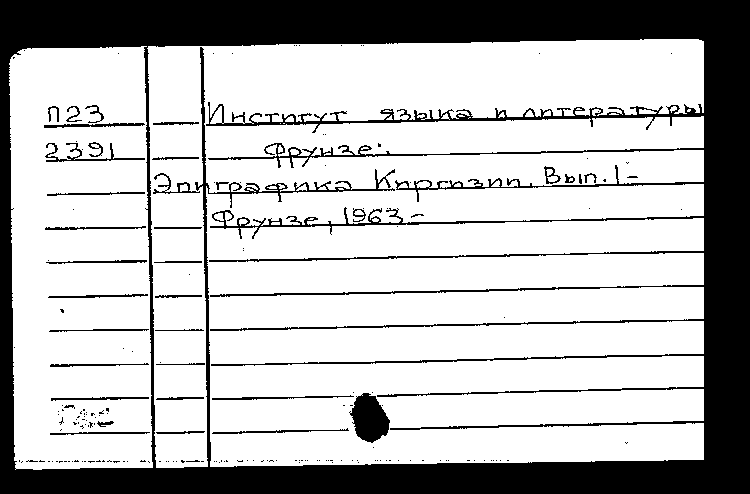 П23 Институт языка и литературы
2391 Фрунзе:.
Эпиграфика Киргизии. Вып. 1-
Фрунзе, 1963-